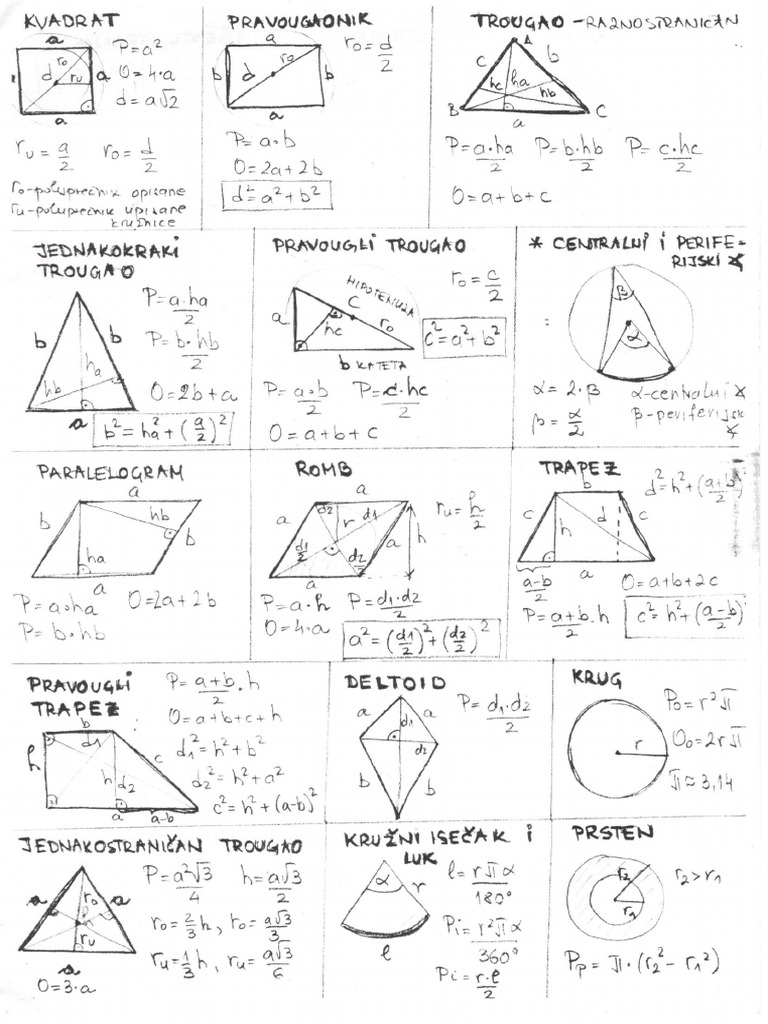 KVADRAT
a
P=a²
O=4·a
d=a√2
ro
d
ru
a
a
ru=a/2 ro=d/2
ro-poluprečnik opisane
ru-poluprečnik upisane
kružnice
PRAVOUGAONIK
a
ro=d/2
b
d
ro
b
a
P=a·b
O=2a+2b
d²=a²+b²
TROUGAO -RAZNOSTRANIČAN
A
c
b
ha
hc
hb
B
a
C
P=a·ha/2 P=b·hb/2 P=c·hc/2
O=a+b+c
JEDNAKOKRAKI
TROUGAO
P=a·ha/2
P=b·hb/2
b
b
ha
hb
O=2b+a
a
b²=ha²+(a/2)²
PRAVOUGLI TROUGAO
HIPOTENUZA
ro=c/2
c
a
hc
ro
c²=a²+b²
b KATETA
P=a·b/2 P=c·hc/2
O=a+b+c
* CENTRALNI I PERIFE-
RIJSKI ∢
β
=
α
α=2·β α-centralni ∢
β=α/2 β-periferijski
∢
PARALELOGRAM
a
b
hb
b
ha
a
P=a·ha O=2a+2b
P=b·hb
ROMB
a
ru=h/2
d2
d1
a
r
a
h
d1/2
d2/2
a
P=a·h P=d1·d2/2
O=4·a
a²=(d1/2)²+(d2/2)²
TRAPEZ
d²=h²+(a+b/2)²
b
c
h
d
c
a-b/2
a
O=a+b+2c
P=a+b/2·h
c²=h²+(a-b/2)²
PRAVOUGLI
TRAPEZ
P=a+b/2·h
O=a+b+c+h
d1²=h²+b²
d2²=h²+a²
c²=h²+(a-b)²
b
d1
h
c
h
d2
a
a-b
DELTOID
P=d1·d2/2
a
d1
a
d2
b
b
KRUG
Po=r²π
Oo=2rπ
π≈3,14
r
JEDNAKOSTRANIČAN TROUGAO
P=a²√3/4 h=a√3/2
ro=2/3h, ro=a√3/3
ru=1/3h, ru=a√3/6
a
ro
a
h
ru
a
O=3·a
KRUŽNI ISEČAK I
LUK
α
r
l
l=rπα/180°
Pi=r²πα/360°
Pi=r·l/2
PRSTEN
r2
r1
r2>r1
Pp=π·(r2²-r1²)